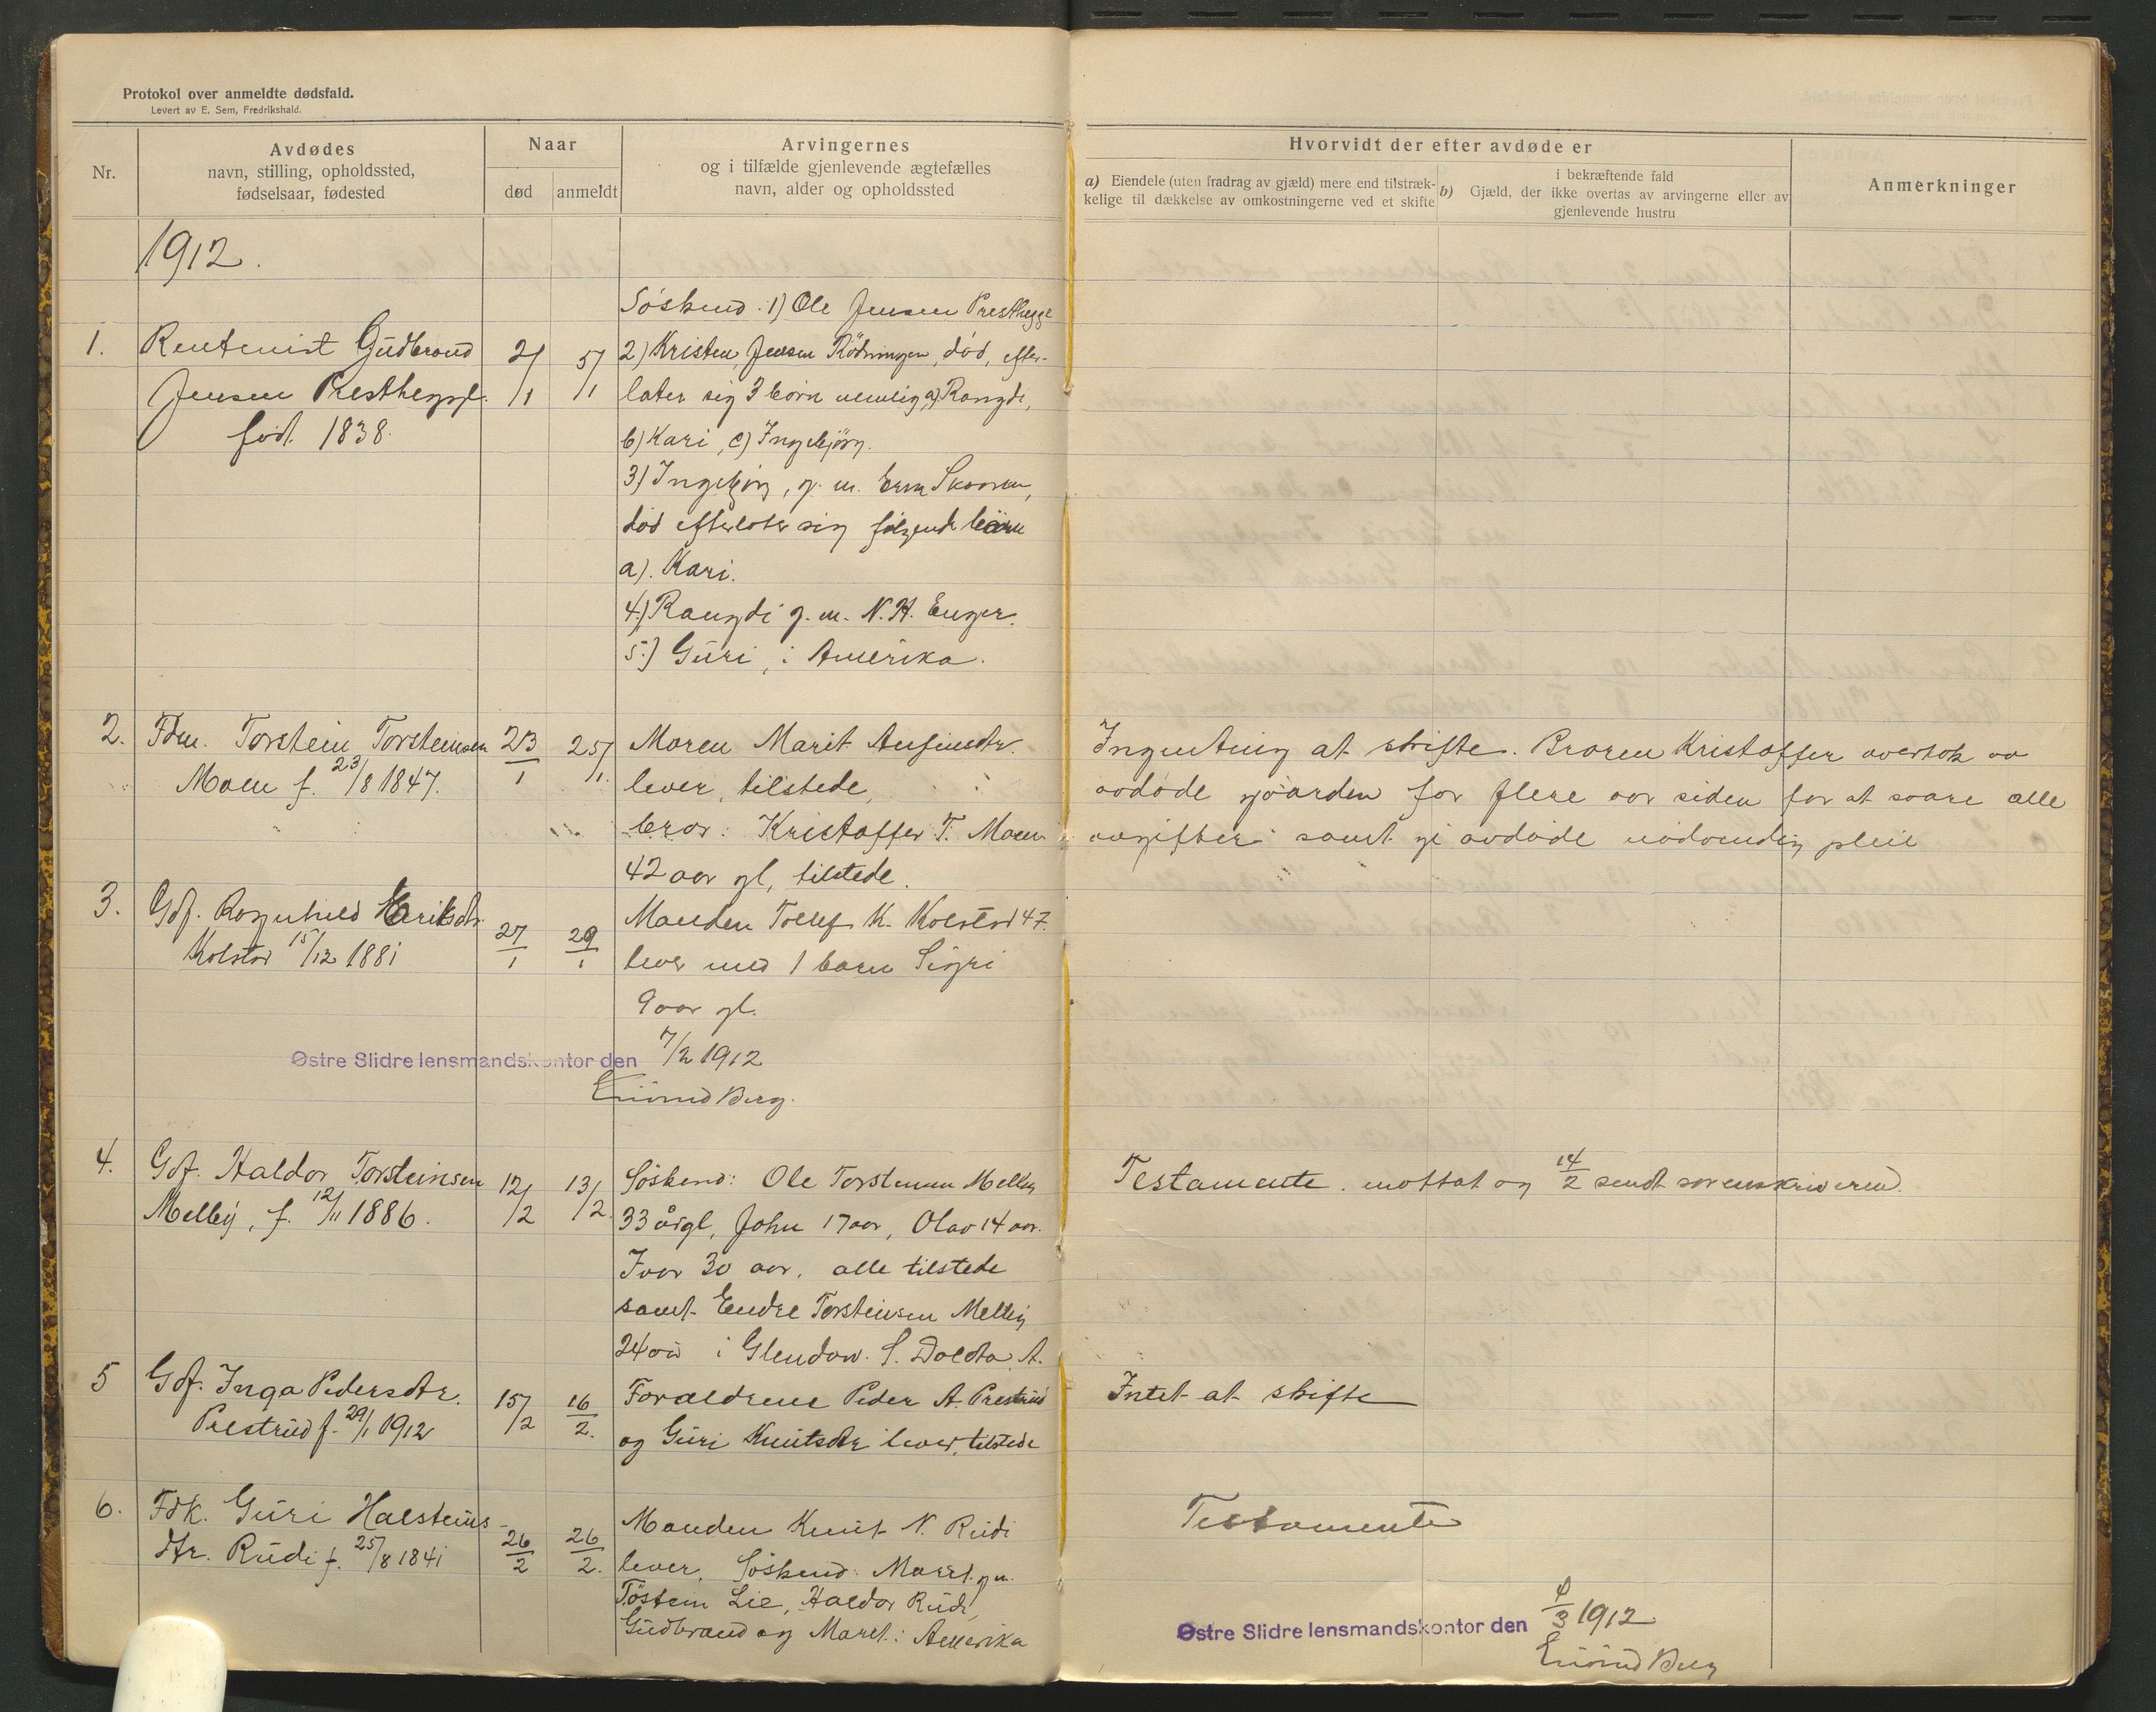 Protokol over anmeldte dødsfald.
Levert av E. Sem, Fredrikshald.
Nr.
Avdødes
navn, stilling, opholdssted,
fødselsaar, fødested
Naar
død
anmeldt
Arvingernes
og i tilfælde gjenlevende ægtefælles
navn, alder og opholdssted
Hvorvidt der efter avdøde er
a) Eiendele (uten fradrag av gjæld) mere end tilstræk-
kelige til dækkelse av omkostningerne ved et skifte
i bekræftende fald
b) Gjæld, der ikke overtas av arvingerne eller av
gjenlevende hustru
Anmerkninger
1912.
1.
Rentenist Gudbrand
Jensen Presthegge.
fød. 1838.
2/1
5/1
Søskend: 1) Ole Jensen Presthegge
2) Kristen Jensen Rödningen, död, efter-
later sig 3 börn nemlig a) Rangdi,
b) Kari, c) Ingebjörg.
3) Ingebjörg, g. m. Skaaren,
död efterlater sig følgende börn
a). Kari.
4.) Rangdi g. m. N. H. Enger.
5.) Guri, i Amerika.
2.
Fdm. Torstein Torsteinsen
Moen f. 23/8 1847.
23/1
25/1.
Moren Marit Anfinsdtr.
lever, tilstede,
bror: Kristoffer T. Moen
42 aar gl, tilstede.
Ingenting at skifte. Broren Kristoffer overtok av
avdøde gaarden for flere aar siden for at svare alle
avgifter samt gi avdøde nødvendig pleie
3.
Gdf. Ragnhild Eriksdtr.
Kolstad 15/12 1881
27/1
29/1
Manden Tollef K. Kolstad 47.
lever med 1 barn Sigri
9 aar gl.
Østre Slidre lensmandskontor den 7/2 1912
Eivind Berg.
4.
Gdf. Haldor Torsteinsen
Melby, f. 12/11 1886.
12/2
13/2.
Søskend: Ole Torsteinsen Melby
33 år gl, John 17 aar, Olav 14 aar.
Ivar 30 aar, alle tilstede
samt Endre Torsteinsen Melby
24 aar i Glendow. S. Dakota, A.
Testamente. mottat og 14/2 sendt sorenskriveren.
5
Gdf. Inga Pedersdtr.
Prestrud f. 29/1 1912
15/2
16/2.
Forældrene Peder A. Prestrud
og Guri Knutsdtr lever, tilstede
Intet at skifte
6.
Fdk. Guri Halsteins-
dtr. Rudi f. 25/8 1841
26/2
26/2.
Manden Knut N. Rudi
lever. Søskend: Marit g m.
Töstein Lie, Haldor Rudi,
Gudbrand og Marit i Amerika
Testamente
Østre Slidre lensmandskontor den 4/3 1912
Eivind Berg